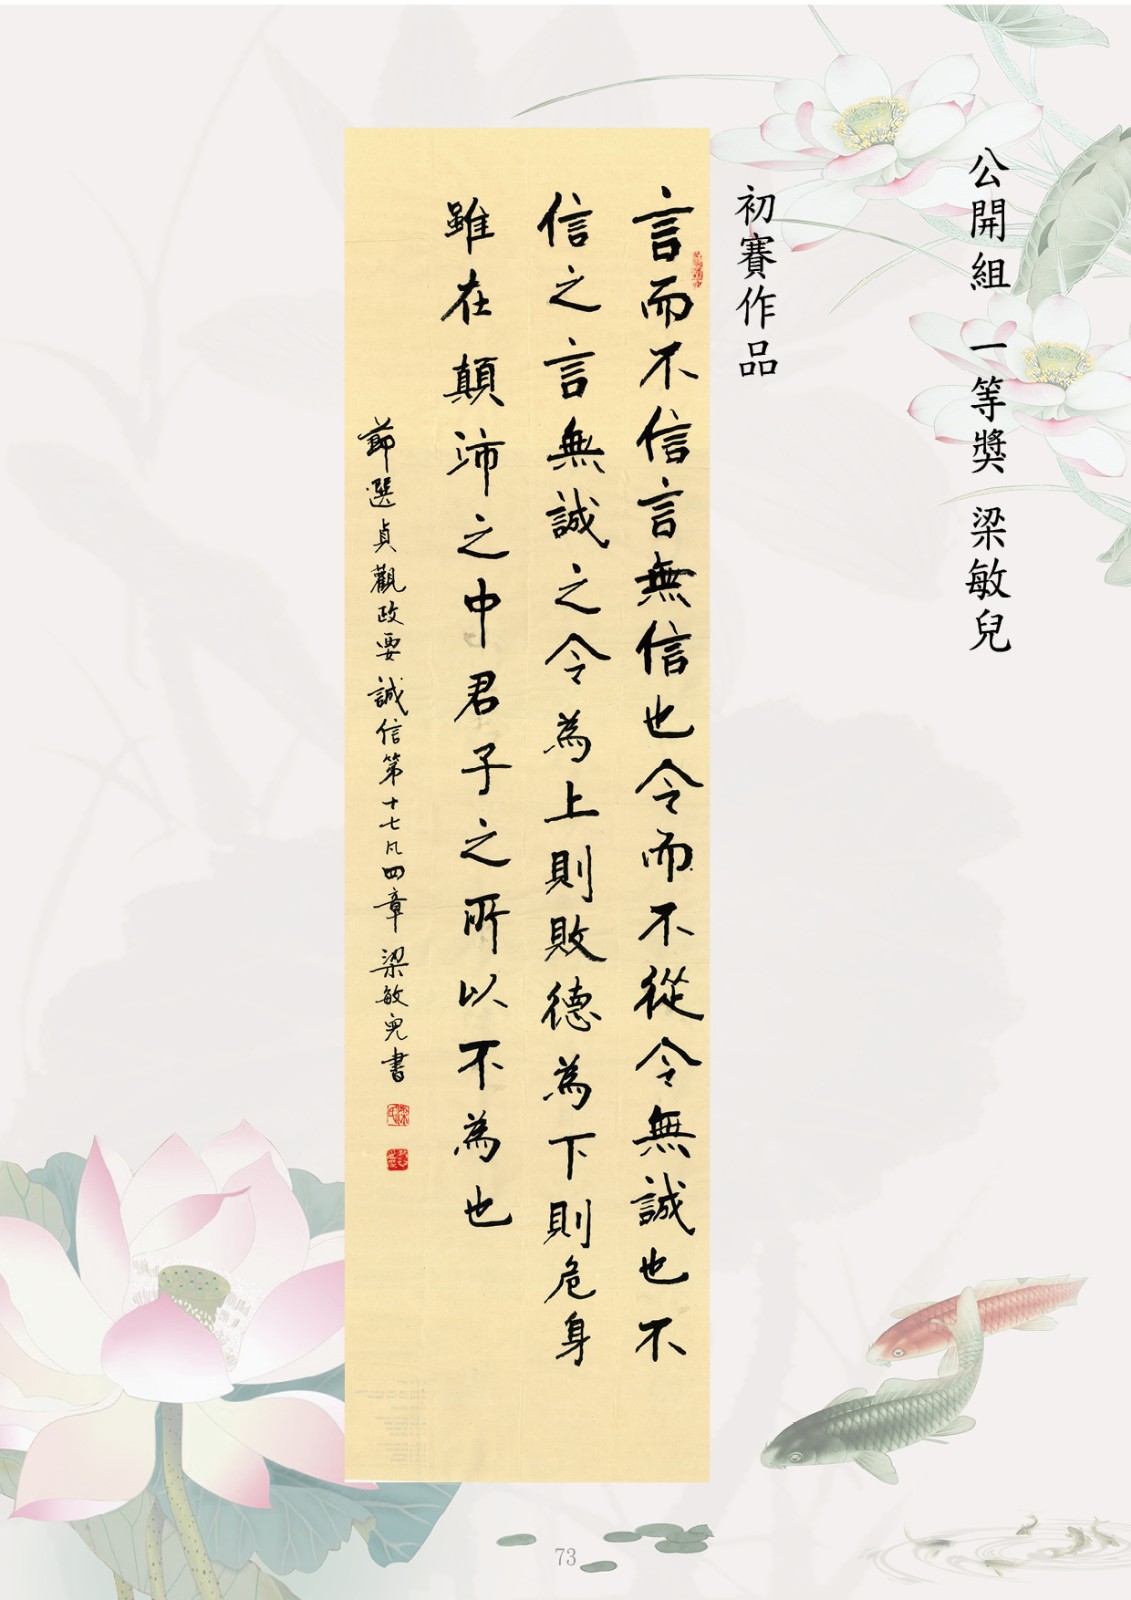 公開組 一等獎 梁敏兒
初賽作品
言而不信言無信也令而不從令無誠也不
信之言無誠之令為上則敗德為下則危身
雖在顛沛之中君子之所以不為也
節選貞觀政要誠信第十七凡四章 梁敏兒書
73